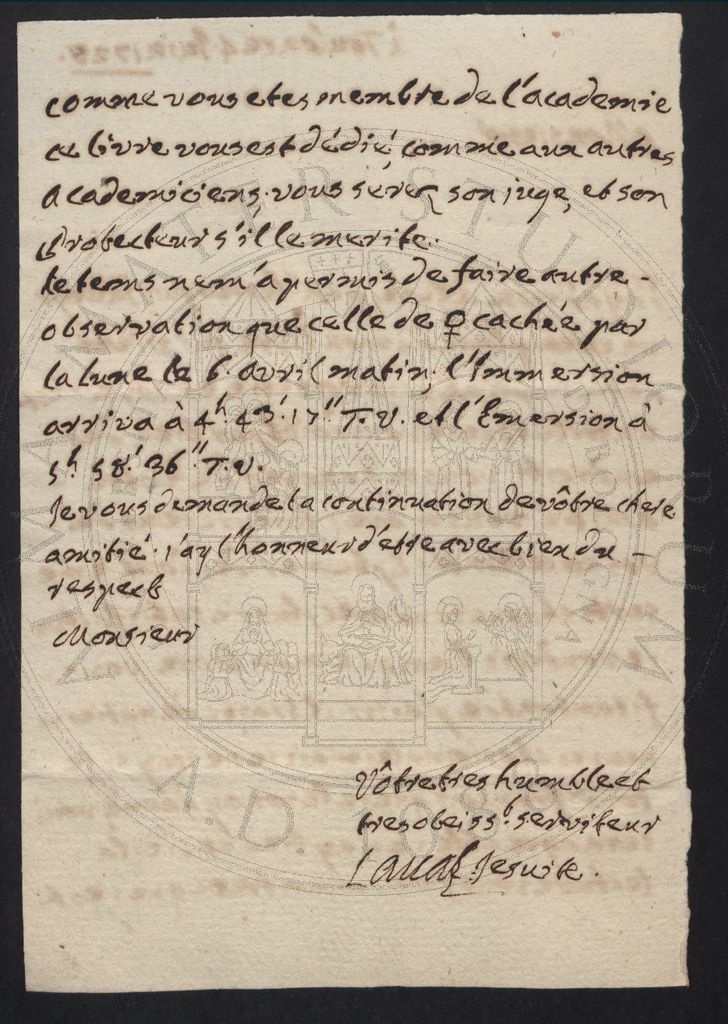 comme vous etes membre de l'academie
ce livre vous est dédié, comme aux autres
academiciens. vous sérez son juge, et son
Protecteur s'il le merite.
le tems ne m'a permis de faire autre -
observation que celle de ♀ cachée par
la lune le 6. avril matin, l'Immersion
arriva à 4h. 43'. 17" T.V. et l'Emersion à
5h. 58'. 36" T.V.
Je vous demande la continuation de vôtre chere
amitié. j'ay l'honneur d'etre avec bien du -
respect
Monsieur
Vôtre tres humble et
tres obeisst. serviteur
Laval Jesuite.
ALMA MATER STUDIORUM
A.D. 1088